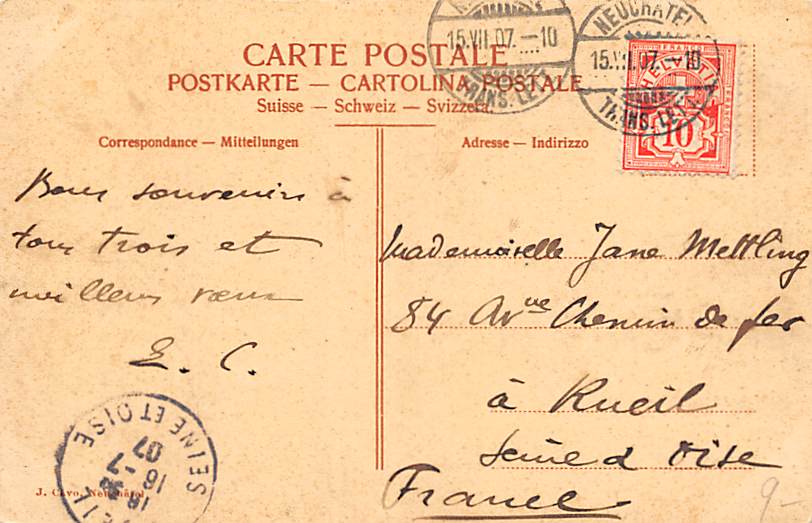 CARTE POSTALE
POSTKARTE — CARTOLINA POSTALE
Suisse — Schweiz — Svizzera
Correspondance — Mitteilungen
Adresse — Indirizzo
NEUCHATEL
15.VII.07.–10
TRANS. LET
15.VII.07.–10
TRANS. LET
FRANCO
HELVETIA
10
Bons souvenirs à
tous trois et
meilleurs vœux
E. C.
Mademoiselle Jane Mettling
84 Avnue Chemin de fer
à Rueil
Seine d Oise
France
SEINE ET OISE
16 -7
07
J. Cavo, Neuchâtel
9-